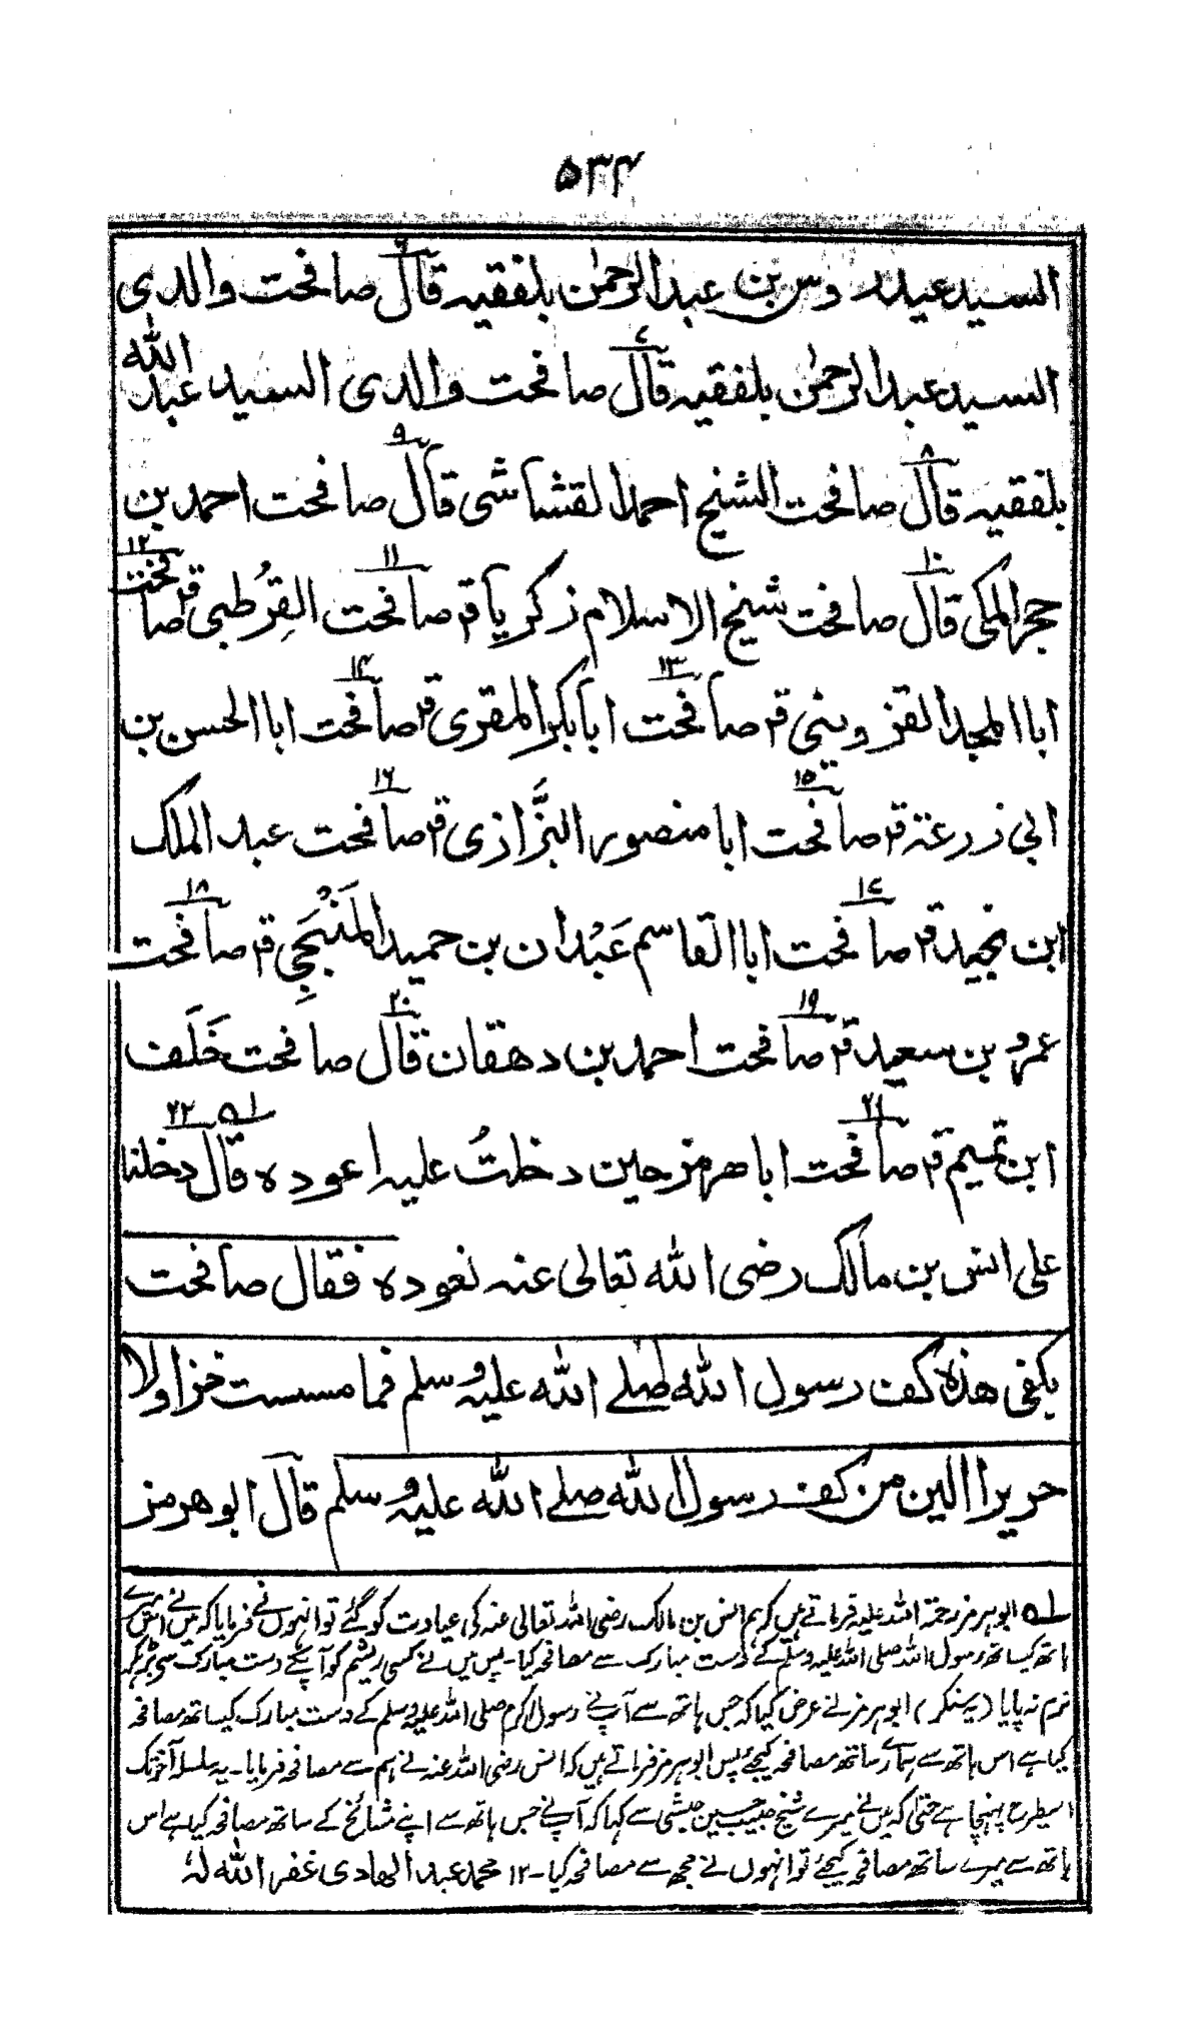 ۵۳۴
۶
السید عیدروس بن عبدالرحمٰن بلفقیہ قال صافحت والدی
۷
السید عبدالرحمٰن بلفقیہ قال صافحت والدی السید عبداللہ
۸ ۹
بلفقیہ قال صافحت الشیخ احمد القشاشی قال صافحت احمد بن
۱۰ ۱۱ ۱۲
حجر المکی قال صافحت شیخ الاسلام زکریا قم صافحت القِرُطبی قم صافحت
۱۳ ۱۴
ابا المجد القزوینی قم صافحت ابابکر المقری قم صافحت ابا الحسن بن
۱۵ ۱۶
ابی زرعۃ قم صافحت ابا منصور البَزَّازی قم صافحت عبد الملک
۱۷ ۱۸
ابن نجید قم صافحت ابا القاسم عَبْدان بن حمید المَنْبَجِی قم صافحت
۱۹ ۲۰
عمرو بن سعید قم صافحت احمد بن دهقان قال صافحت خَلَف
۲۱ ۱ه ۲۲
ابن تمیم قم صافحت ابا هرمز حین دخلتُ علیہ اعودہ قال دخلنا
علی انس بن مالک رضی اللہ تعالی عنہ نعودہ فقال صافحت
بکفی هذہ کف رسول اللہ صلے اللہ علیہ وسلم فما مسست خزا ولا
حریرا الین من کف رسول اللہ صلے اللہ علیہ وسلم قال ابو هرمز
۱ه ابوہرمز رحمۃ اللہ علیہ فرماتے ہیں کہ ہم انس بن مالک رضی اللہ تعالی عنہ کی عیادت کو گئے تو انہوں نے فرمایا کہ میں نے اس میرے
ہاتھ کیساتھ رسول اللہ صلی اللہ علیہ وسلم کے دست مبارک سے مصافحہ کیا۔ پس میں نے کسی ریشم کو آپ کے دست مبارک سی بڑہکر
نرم نہ پایا (یہ سنکر) ابوہرمز نے عرض کیا کہ جس ہاتھ سے آپ نے رسول اکرم صلی اللہ علیہ وسلم کے دست مبارک کیساتھ مصافحہ
کیا ہے اس ہاتھ سے ہمارے ساتھ مصافحہ کیجئے پس ابوہرمز فرماتے ہیں کہ انس رضی اللہ عنہ نے ہم سے مصافحہ فرمایا۔ یہ سلسلہ آخر تک
اسیطرح پہنچا ہے حتی کہ میں نے میرے شیخ حبیب حسین حبشی سے کہا کہ آپ نے جس ہاتھ سے اپنے مشائخ کے ساتھ مصافحہ کیا ہے اس
ہاتھ سے میرے ساتھ مصافحہ کیجئے تو انہوں نے مجھ سے مصافحہ کیا۔ ۱۲ محمد عبد الھادی غفر اللہ لہٗ